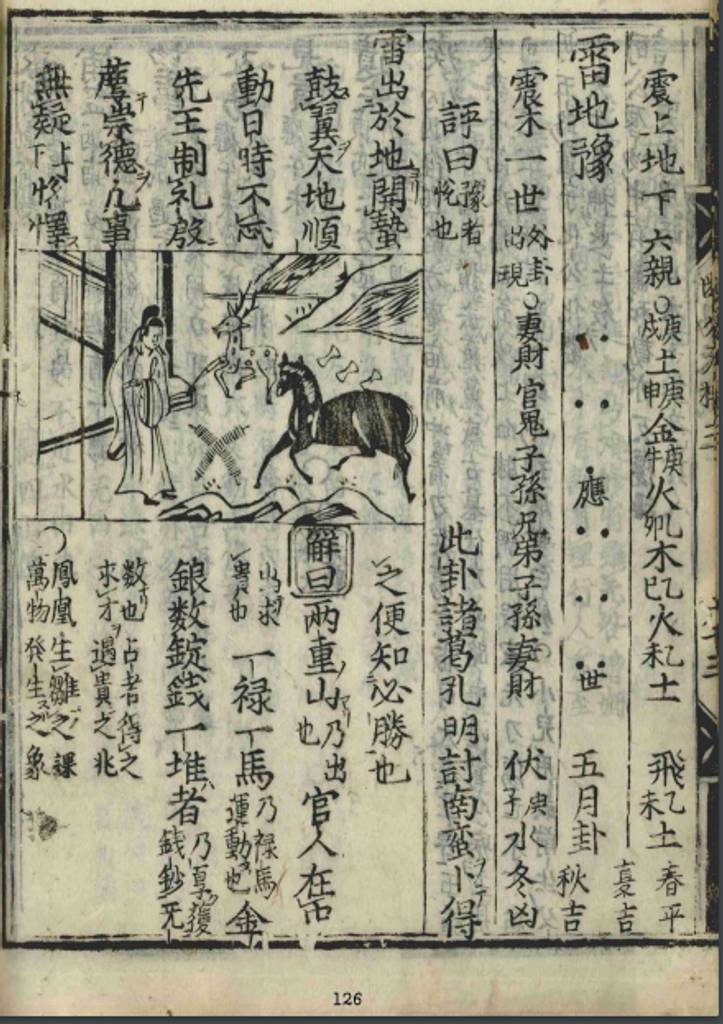 震上地下六親〇庚戌土庚申金庚午火乙卯木乙巳火乙未土　飛乙未土　春平
夏吉
雷地豫　應　世　五月卦　秋吉
震木一世外卦出現〇妻財官鬼子孫兄弟子孫妻財　伏庚子水冬凶
評曰豫者悅也　此卦諸葛孔明討南蛮卜得
之便知必勝也
雷出於地開蟄
鼓翼天地順
動日時不忒
先王制礼殷
薦崇德凢事
無疑上將懌
解曰両重山乃出也官人在中
出求貴也一禄一馬乃禄馬運動也金
銀数錠錢一堆者乃厚獲錢鈔无
数也占者得之
求才遇貴之兆
鳳凰生雛之課
萬物発生之象
126